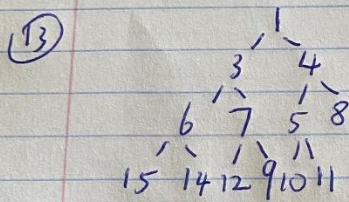 13 1
3 4
6 7 5 8
15 14 12 9 10 11